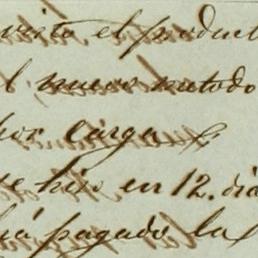 el product
l nuevo metodo
por carga
e hizo en 12. dia
há pagado la